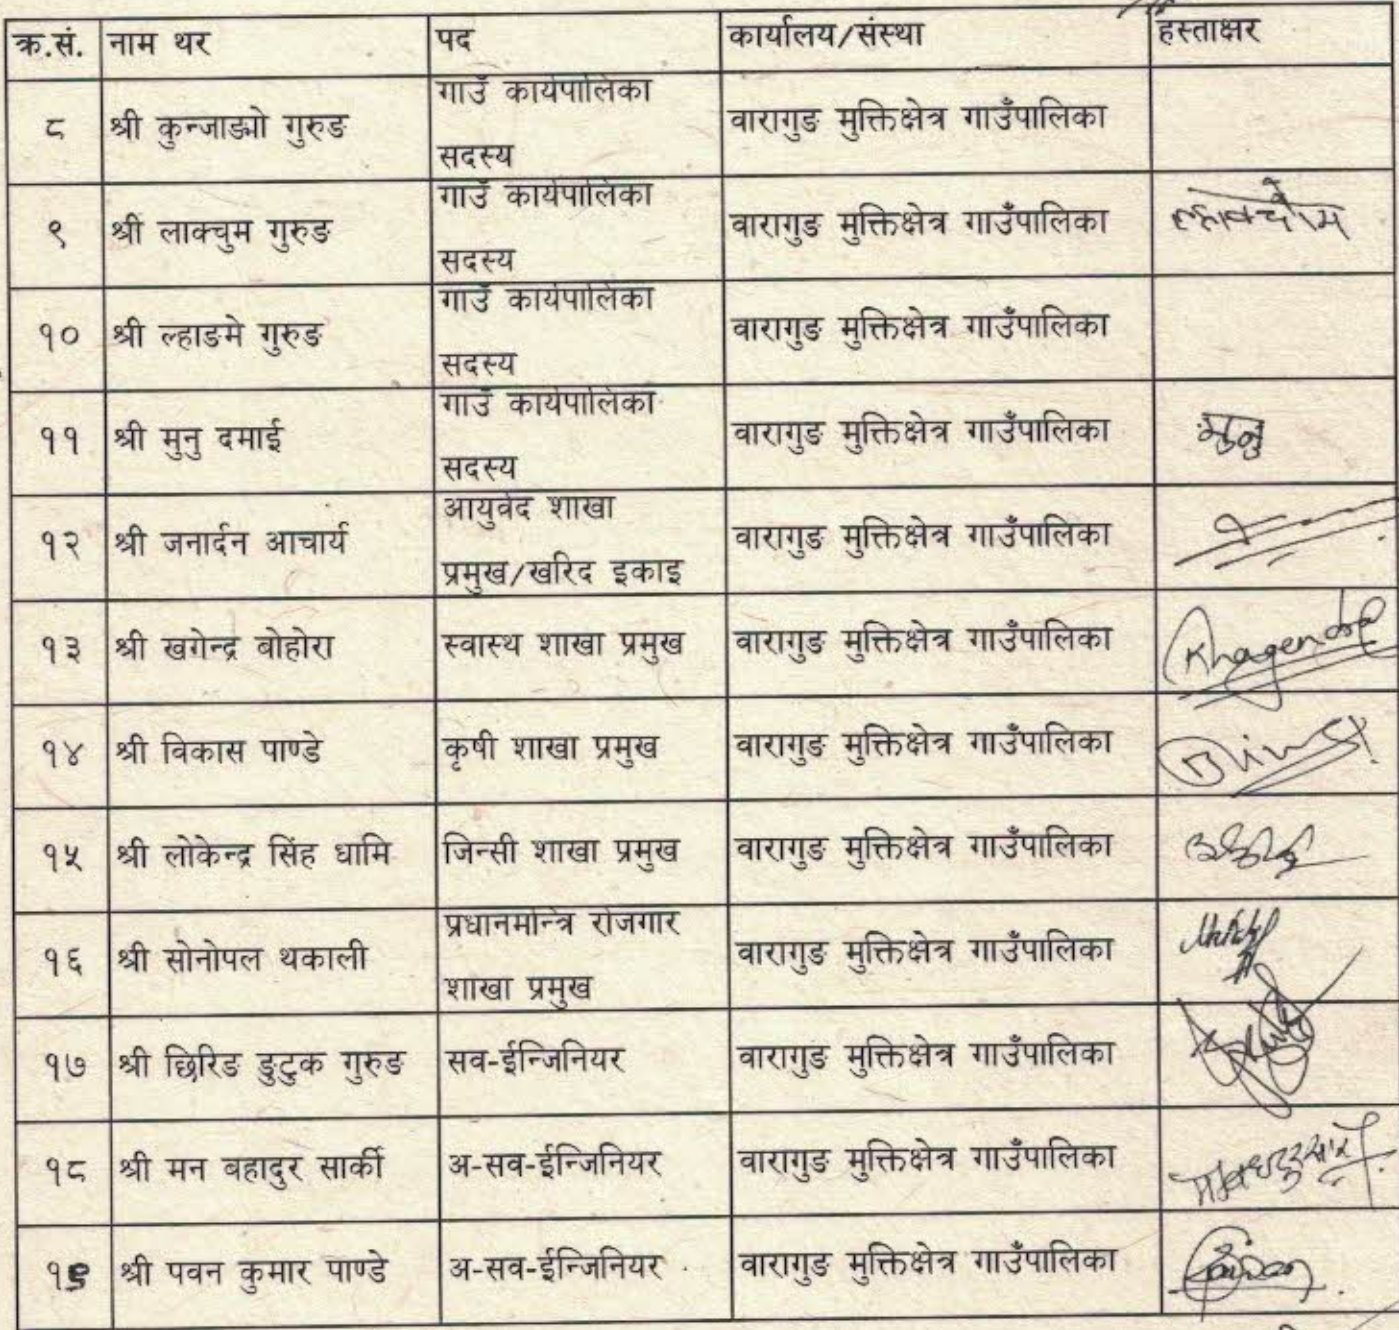 क्र.सं. नाम थर पद कार्यालय/संस्था हस्ताक्षर
८ श्री कुन्जाङ्मो गुरुङ गाउँ कार्यपालिका सदस्य वारागुङ मुक्तिक्षेत्र गाउँपालिका
९ श्री लाक्चुम गुरुङ गाउँ कार्यपालिका सदस्य वारागुङ मुक्तिक्षेत्र गाउँपालिका
१० श्री ल्हाङमे गुरुङ गाउँ कार्यपालिका सदस्य वारागुङ मुक्तिक्षेत्र गाउँपालिका
११ श्री मुनु दमाई गाउँ कार्यपालिका सदस्य वारागुङ मुक्तिक्षेत्र गाउँपालिका मुनु
१२ श्री जनार्दन आचार्य आयुर्वेद शाखा प्रमुख/खरिद इकाइ वारागुङ मुक्तिक्षेत्र गाउँपालिका
१३ श्री खगेन्द्र बोहोरा स्वास्थ शाखा प्रमुख वारागुङ मुक्तिक्षेत्र गाउँपालिका Khagendra
१४ श्री विकास पाण्डे कृषी शाखा प्रमुख वारागुङ मुक्तिक्षेत्र गाउँपालिका
१५ श्री लोकेन्द्र सिंह धामि जिन्सी शाखा प्रमुख वारागुङ मुक्तिक्षेत्र गाउँपालिका
१६ श्री सोनोपल थकाली प्रधानमन्त्रि रोजगार शाखा प्रमुख वारागुङ मुक्तिक्षेत्र गाउँपालिका
१७ श्री छिरिङ डुटुक गुरुङ सव-ईन्जिनियर वारागुङ मुक्तिक्षेत्र गाउँपालिका
१८ श्री मन बहादुर सार्की अ-सव-ईन्जिनियर वारागुङ मुक्तिक्षेत्र गाउँपालिका
१९ श्री पवन कुमार पाण्डे अ-सव-ईन्जिनियर वारागुङ मुक्तिक्षेत्र गाउँपालिका